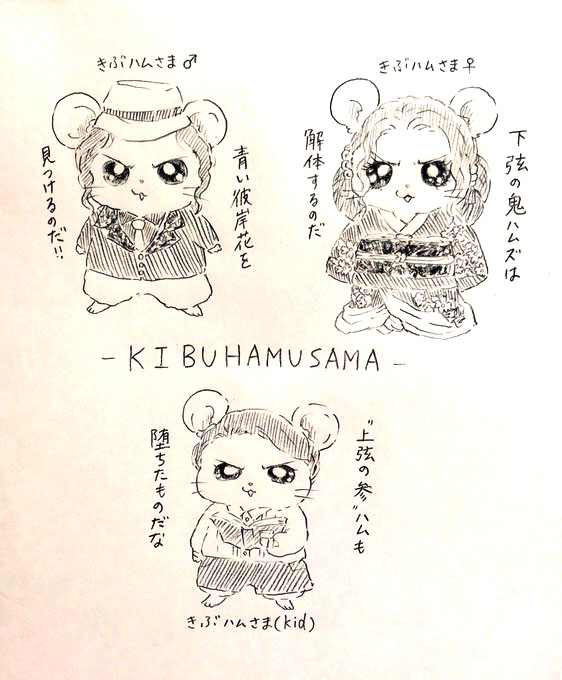 きぶハムさま♂
青い彼岸花を
見つけるのだ!!
きぶハムさま♀
下弦の鬼ハムズは
解体するのだ
-KIBUHAMUSAMA-
"上弦の参"ハムも
堕ちたものだな
きぶハムさま(kid)